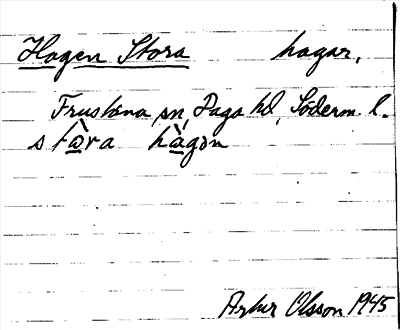 Hagen Stora hagar.
Frustuna sn, Daga hd, Söderm. l.
stòra hàgən
Artur Olsson 1945